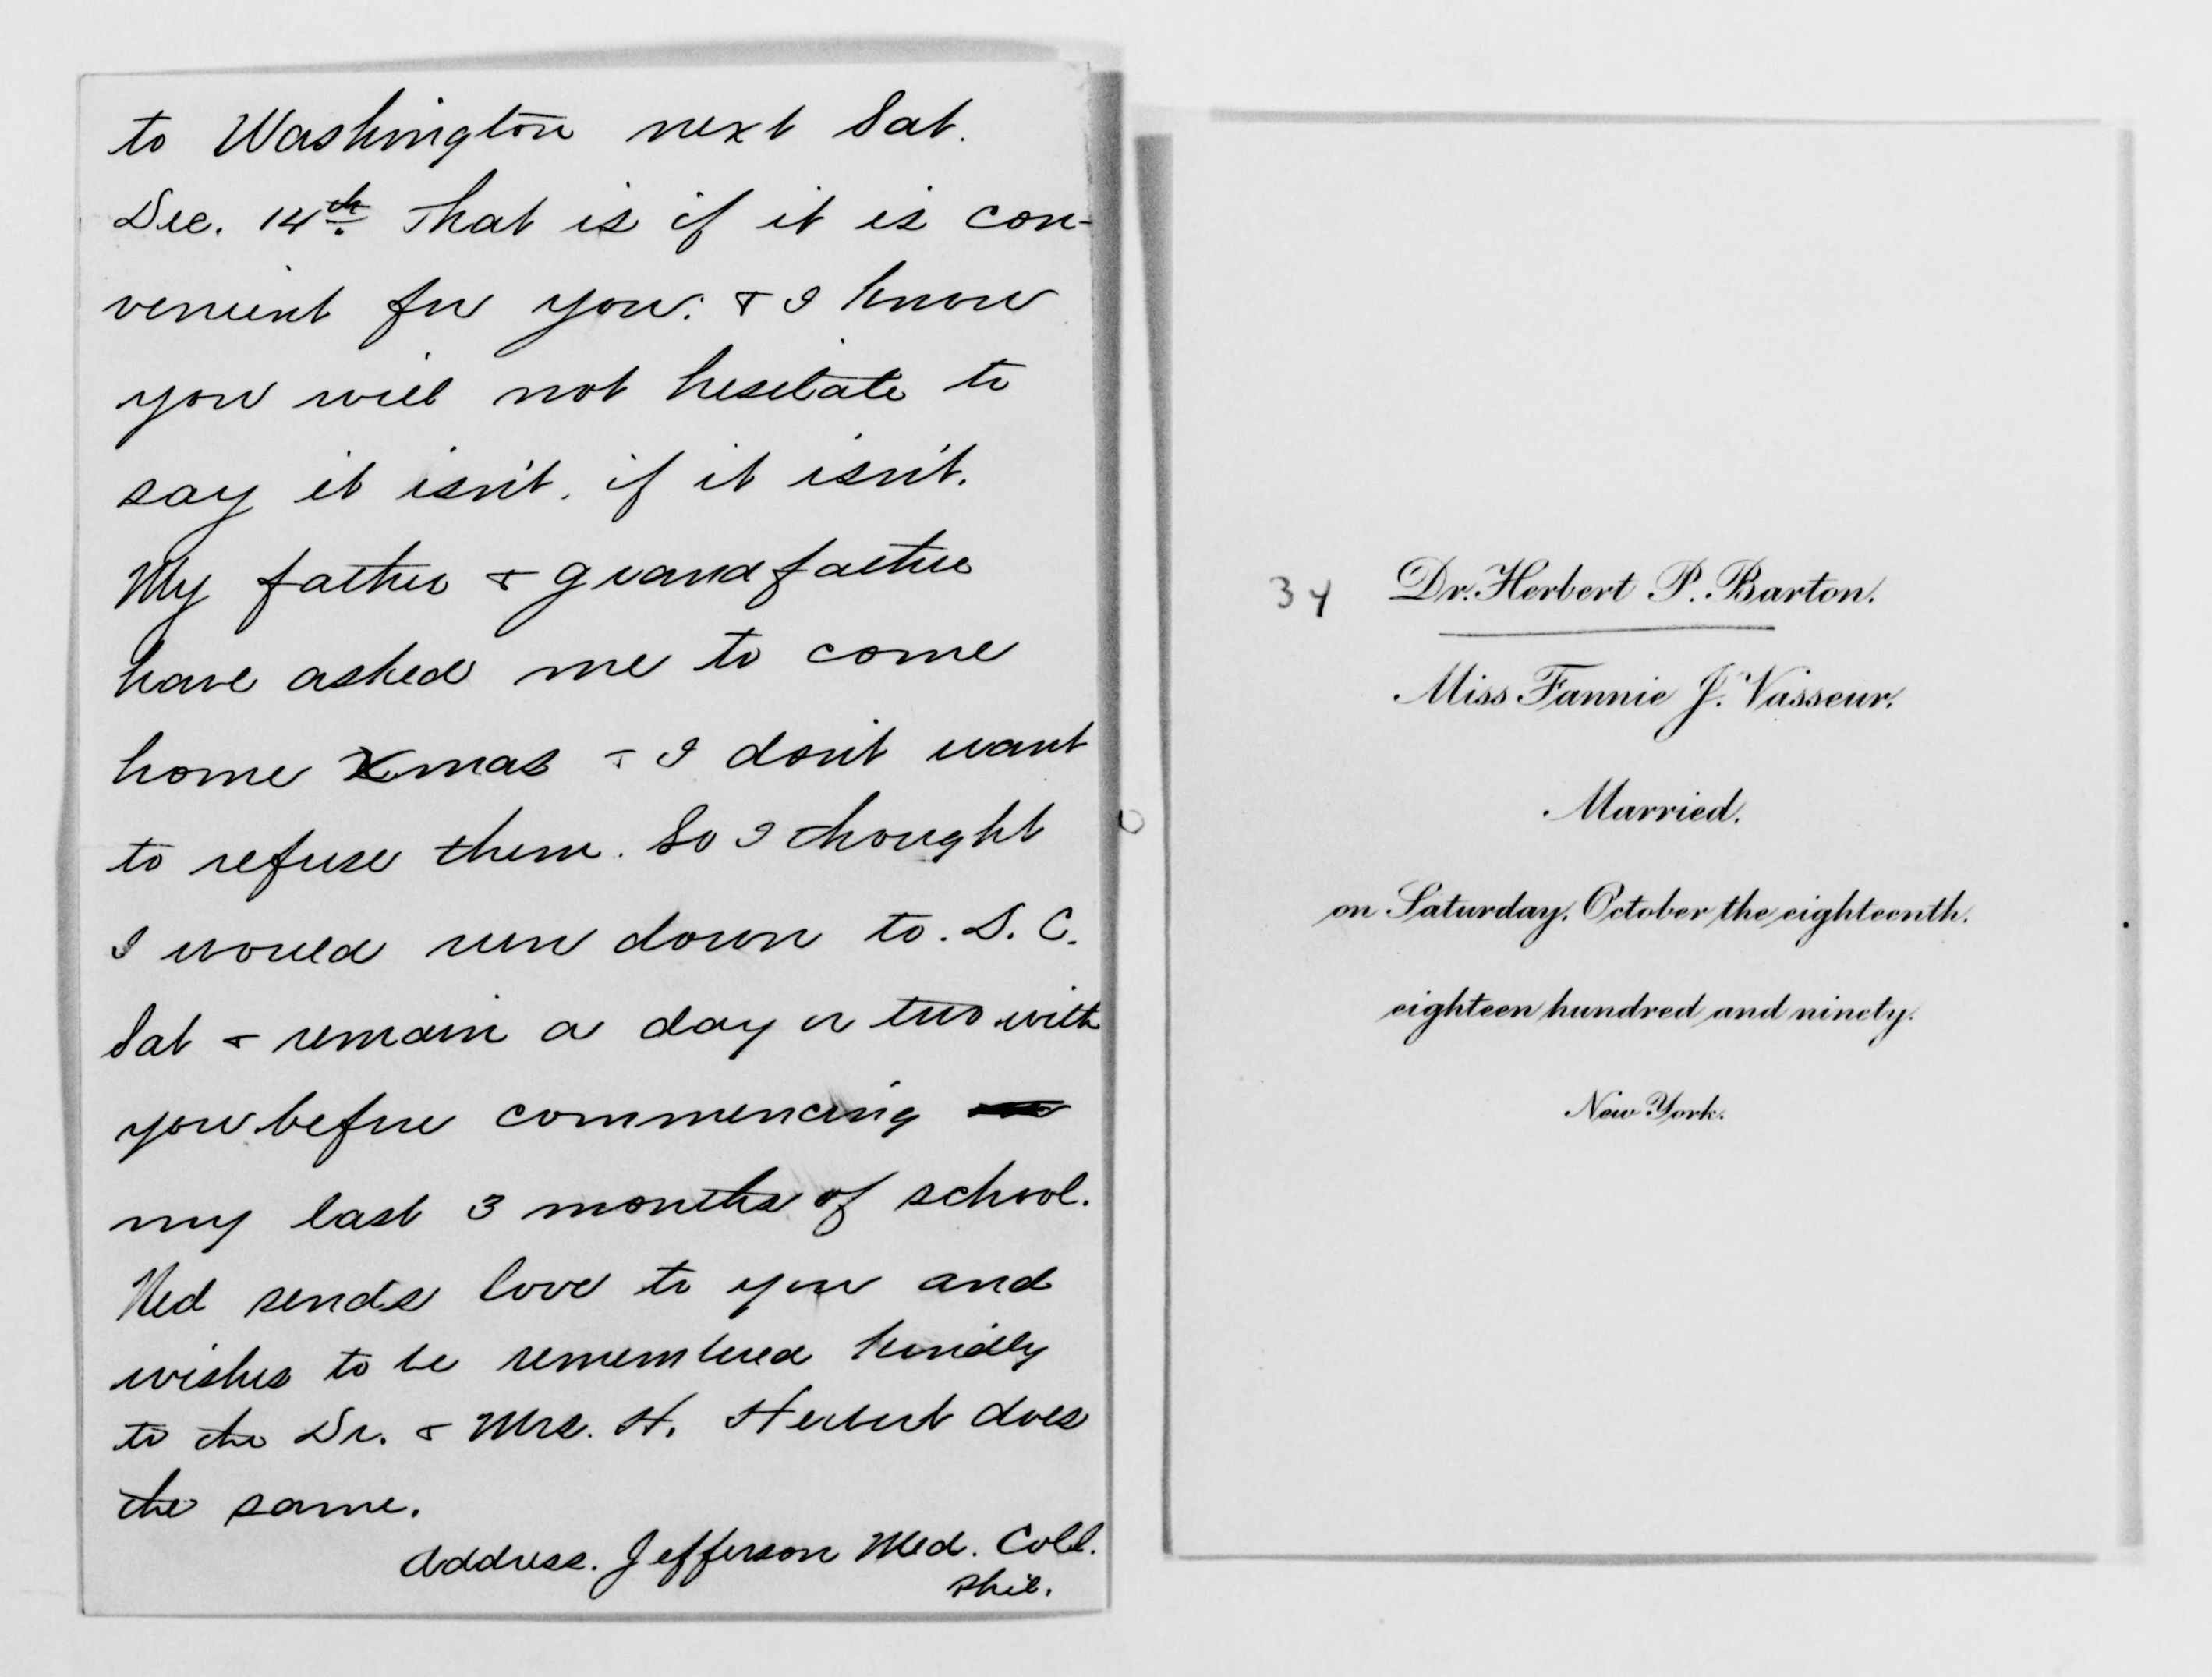 to Washington next Sat.
Dec. 14th. That is if it is con-
venient for you. & I know
you will not hesitate to
say it isn't. if it isn't.
My father & grandfather
have asked me to come
home Xmas & I don't want
to refuse them. So I thought
I would run down to. D. C.
Sat & remain a day or two with
you before commencing
my last 3 months of school.
Ned sends love to you and
wishes to be remembered kindly
to the Dr. & Mrs. H. Herbert does
the same.
Address. Jefferson Med. Coll.
Phil.
34 Dr. Herbert P. Barton.
Miss Fannie J. Vasseur.
Married.
on Saturday, October the eighteenth.
eighteen hundred and ninety.
New York.